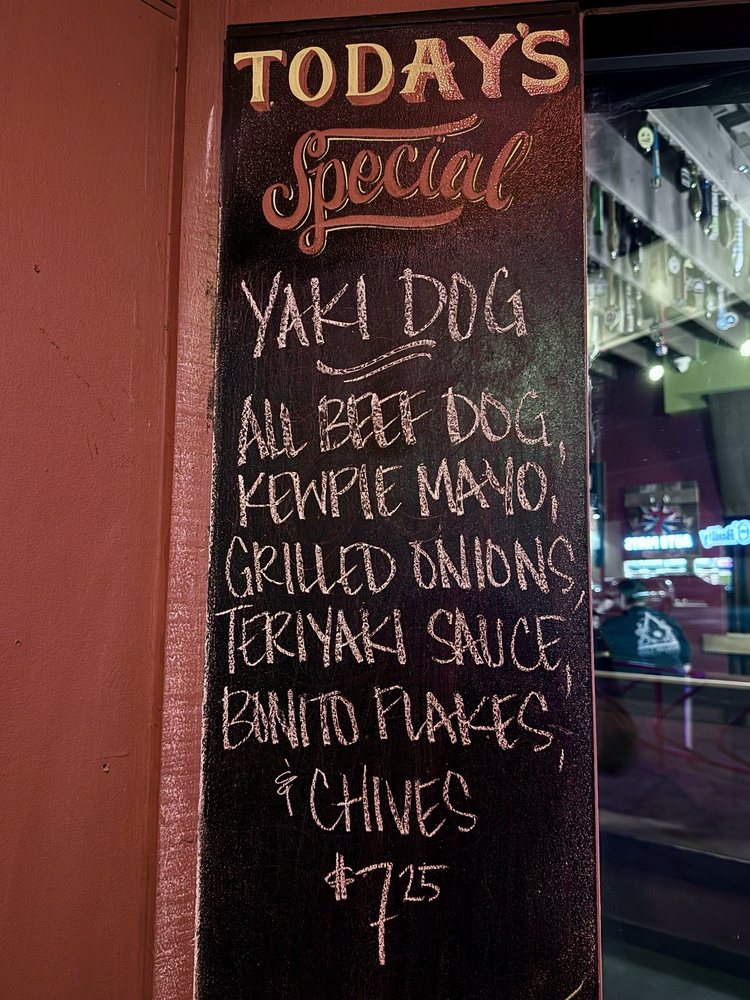 TODAY'S
Special
YAKI DOG
ALL BEEF DOG,
KEWPIE MAYO,
GRILLED ONIONS,
TERIYAKI SAUCE,
BONITO FLAKES,
& CHIVES
$7.25